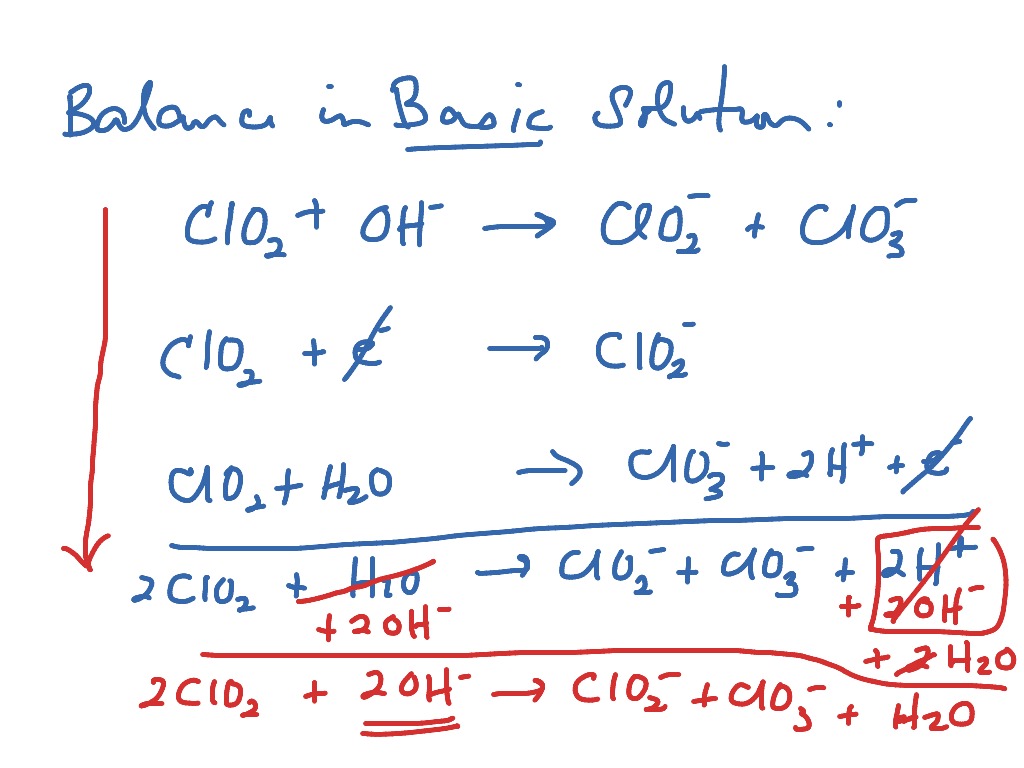 Balance in Basic Solution:
ClO₂ + OH⁻ → ClO₂⁻ + ClO₃⁻
ClO₂ + e⁻ → ClO₂⁻
ClO₂ + H₂O → ClO₃⁻ + 2H⁺ + e⁻
2ClO₂ + H₂O → ClO₂⁻ + ClO₃⁻ + 2H⁺
+ 2OH⁻ + 2OH⁻
+ 2H₂O
2ClO₂ + 2OH⁻ → ClO₂⁻ + ClO₃⁻ + H₂O